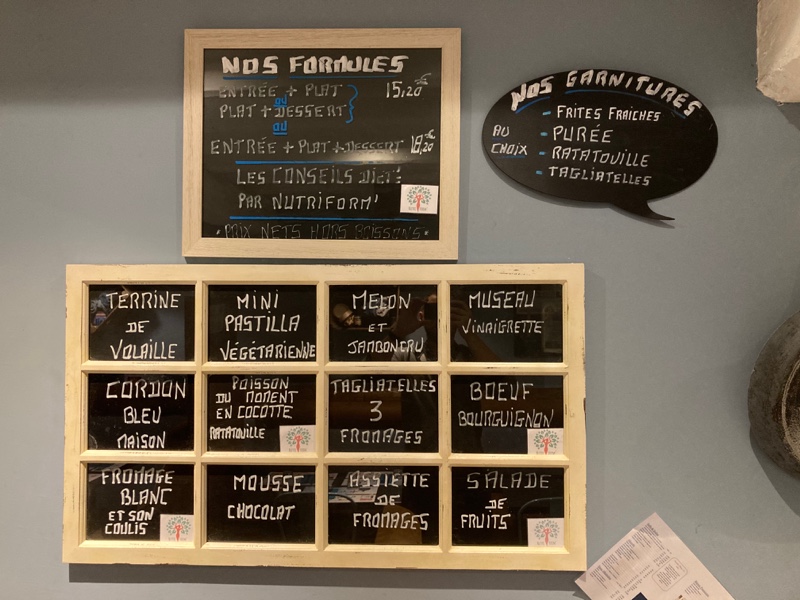 NOS FORMULES
ENTRÉE + PLAT 15,20€
ou
PLAT + DESSERT
ou
ENTRÉE + PLAT + DESSERT 18,20€
LES CONSEILS DIET:
PAR NUTRIFORM'
• PRIX NETS HORS BOISSONS •
NOS GARNITURES
AU CHOIX
- FRITES FRAICHES
- PURÉE
- RATATOUILLE
- TAGLIATELLES
TERRINE
DE
VOLAILLE
MINI
PASTILLA
VÉGÉTARIENNE
MELON
ET
JAMBON CRU
MUSEAU
VINAIGRETTE
CORDON
BLEU
MAISON
POISSON
DU MOMENT
EN COCOTTE
RATATOUILLE
TAGLIATELLES
3
FROMAGES
BOEUF
BOURGUIGNON
FROMAGE
BLANC
ET SON
COULIS
MOUSSE
CHOCOLAT
ASSIETTE
DE
FROMAGES
SALADE
DE
FRUITS